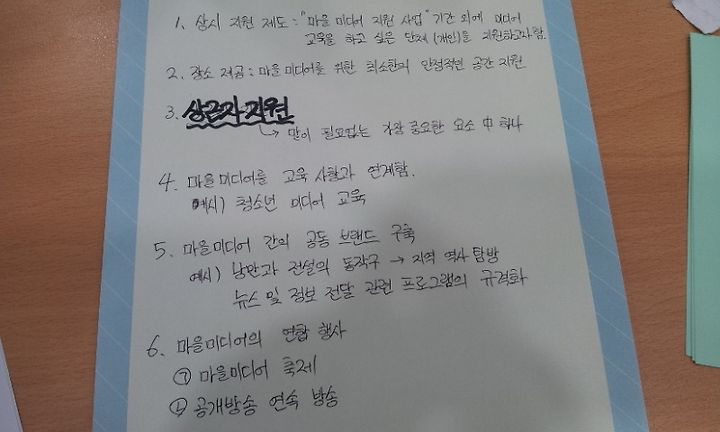 1. 상시 지원 제도 : "마을 미디어 지원 사업" 기간 외에 미디어
교육을 하고 싶은 단체 (개인)을 지원하고자 함.
2. 장소 제공 : 마을 미디어를 위한 최소한의 안정적인 공간 지원
3. 상근자 지원
↳ 말이 필요없는 가장 중요한 요소 中 하나
4. 마을미디어를 교육 사회과 연계함.
예시) 청소년 미디어 교육
5. 마을미디어 간의 공동 브랜드 구축
예시) 낭만과 전설의 동작구 → 지역 역사 탐방
뉴스 및 정보 전달 관련 프로그램의 규격화
6. 마을미디어의 연합 행사
㉠ 마을미디어 축제
㉡ 공개방송 연속 방송